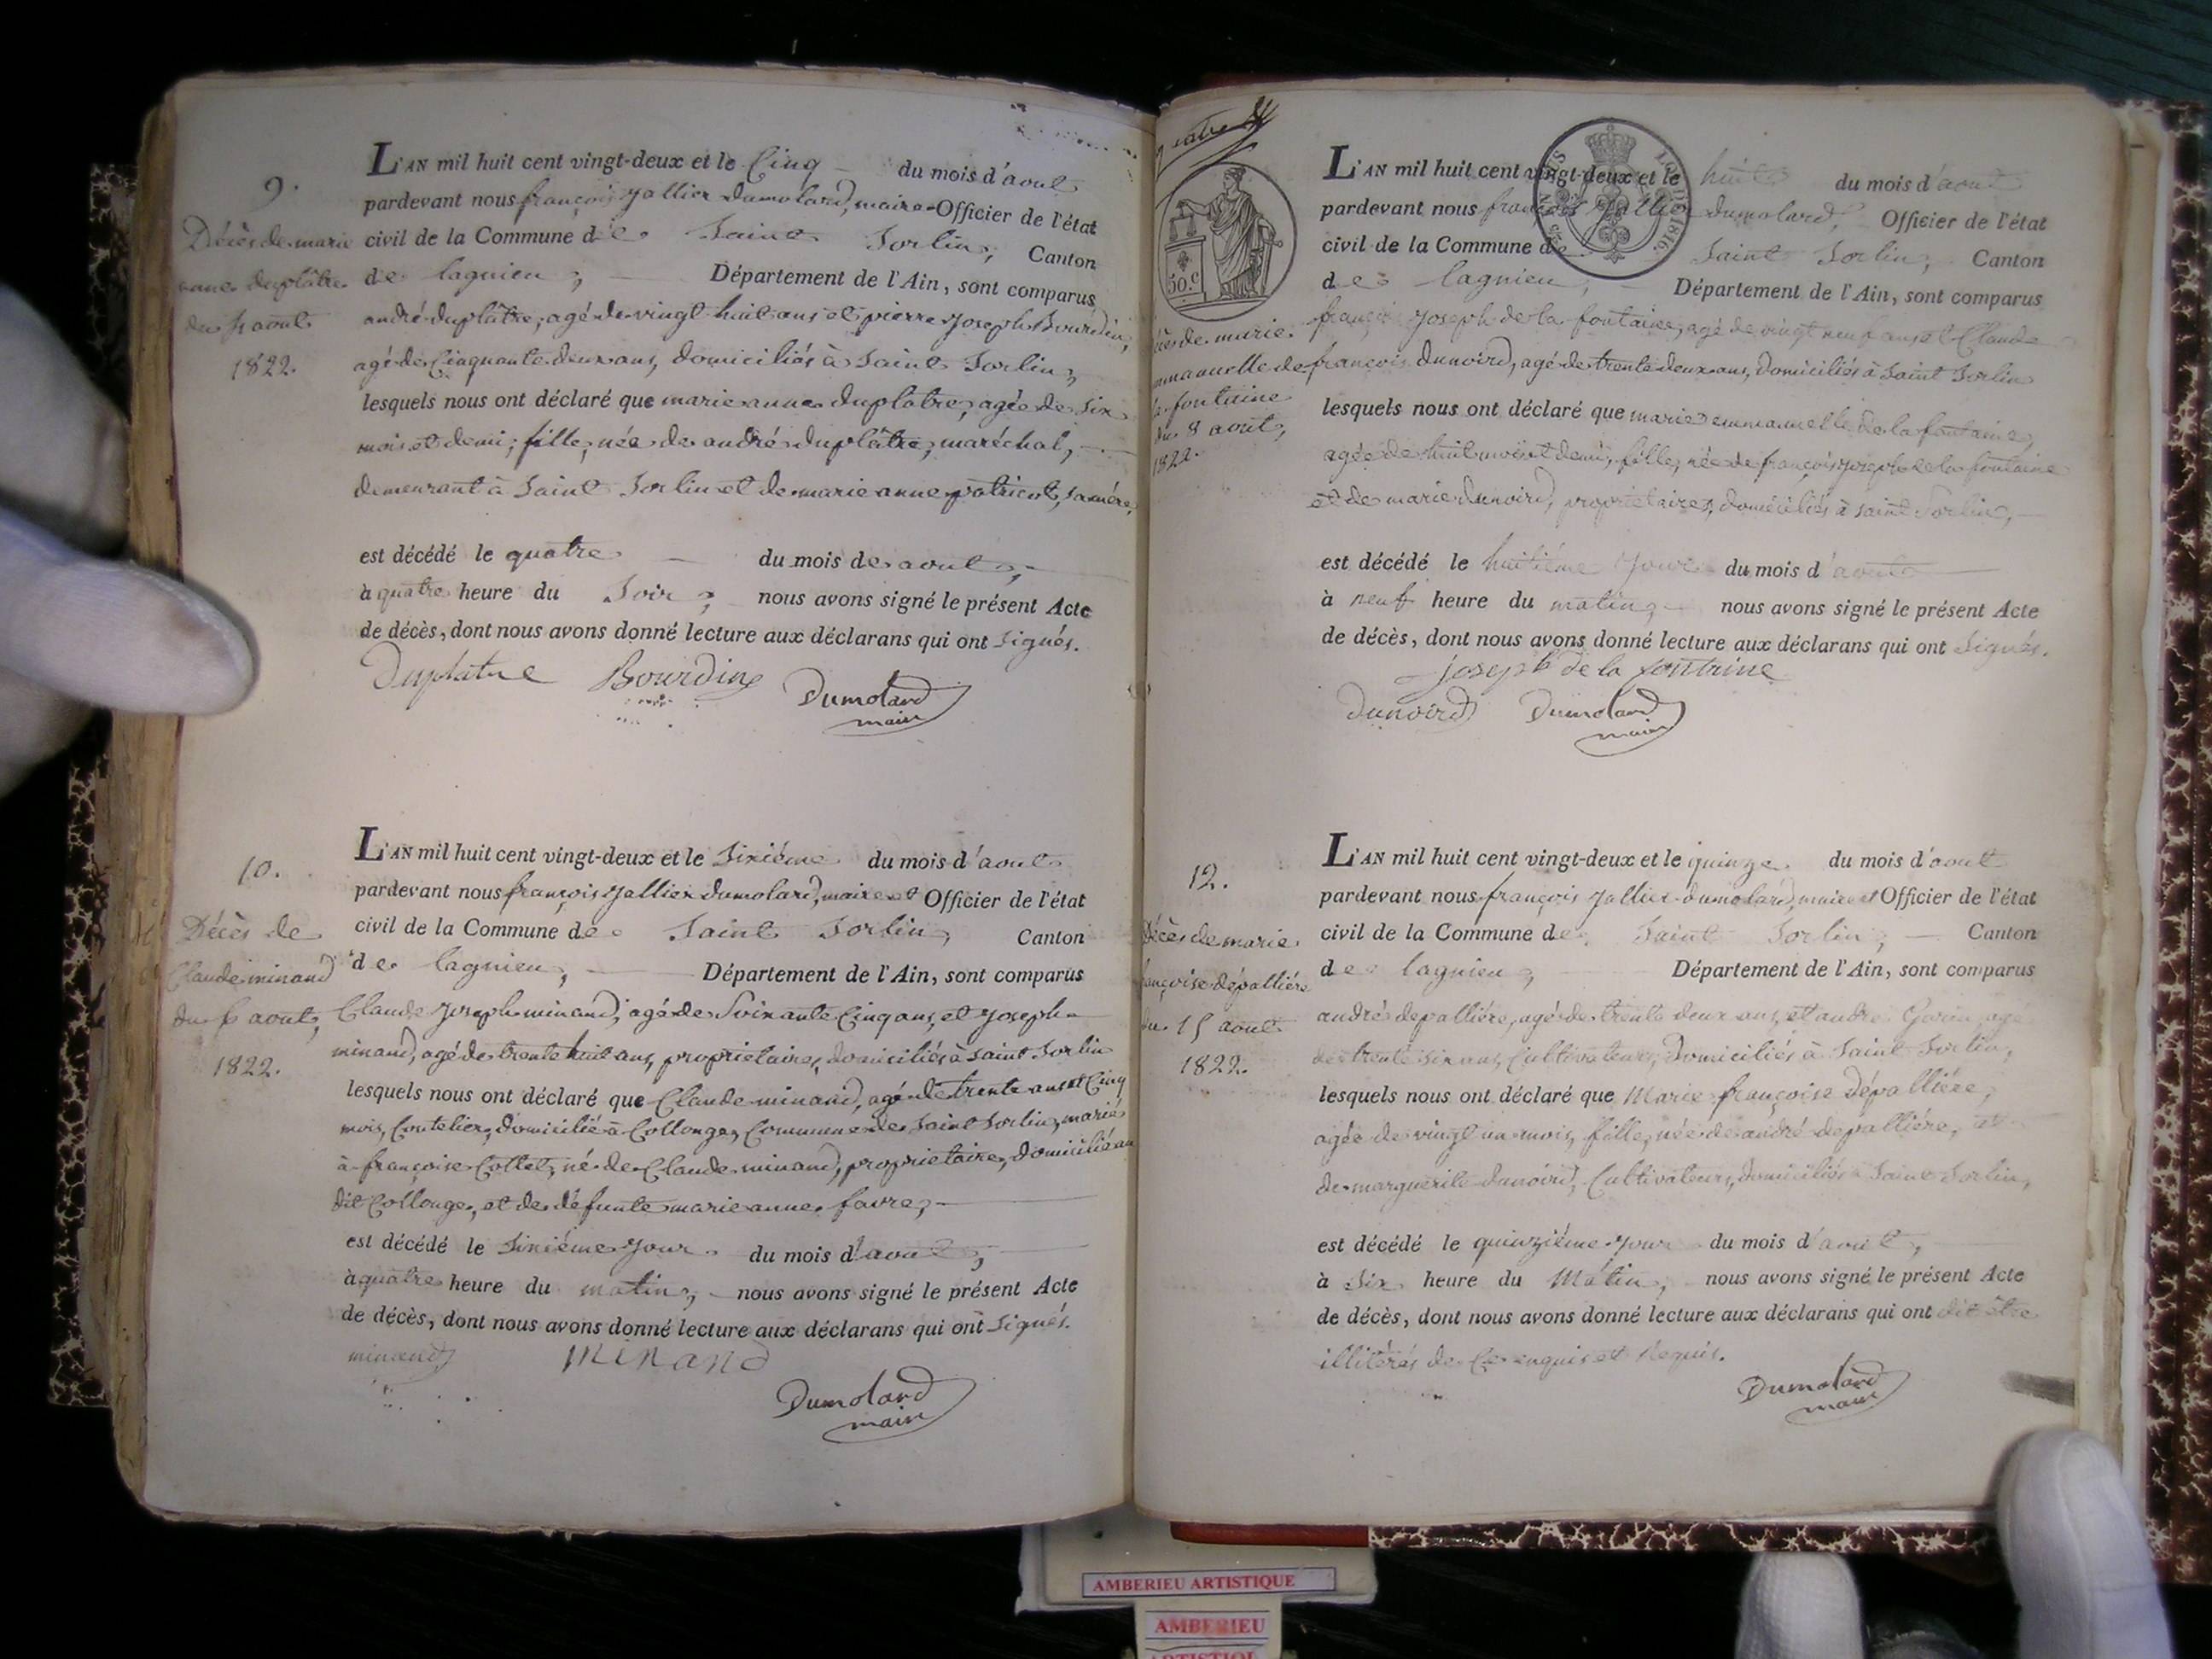 9.
Décès de marie
anne duplâtre
du 5 aout
1822.
L'AN mil huit cent vingt-deux et le Cinq du mois d'aout
pardevant nous françois jallier dumolard, maire Officier de l'état
civil de la Commune de Saint Sorlin, Canton
de lagnieu, Département de l'Ain, sont comparus
andré duplâtre, agé de vingt huit ans et pierre joseph Bourdin,
agé de Cinquante deux ans, domiciliés à Saint Sorlin,
lesquels nous ont déclaré que marie anne duplatre, agée de six
mois et demi, fille, née de andré duplâtre, maréchal,
demeurant à Saint Sorlin et de marie anne patricot, sa mére,
est décédé le quatre du mois de aout,
à quatre heure du Soir, nous avons signé le présent Acte
de décès, dont nous avons donné lecture aux déclarans qui ont signés.
Duplatre Bourdin Dumolard
maire
10.
Décès de
Claude minand
du 6 aout,
1822.
L'AN mil huit cent vingt-deux et le sixiéme du mois d'aout
pardevant nous françois jallier dumolard, maire et Officier de l'état
civil de la Commune de Saint Sorlin, Canton
de lagnieu, Département de l'Ain, sont comparus
Claude joseph minand, agé de Soixante Cinq ans, et joseph
minand, agé de trente huit ans, proprietaires, domiciliés à Saint Sorlin
lesquels nous ont déclaré que Claude minand, agé de trente ans et Cinq
mois, Coutelier, domicilié à Collonge, Commune de Saint Sorlin, marié
à françoise Collet, né de Claude minand, proprietaire, domicilié au
dit Collonge, et de défunte marie anne favre,
est décédé le sixiéme jour du mois d'aout,
à quatre heure du matin, nous avons signé le présent Acte
de décès, dont nous avons donné lecture aux déclarans qui ont signés.
minand minand
Dumolard
maire
50.c
LOI DE 1816
de marie
emmanuelle de
la fontaine
du 8 août,
1822.
L'AN mil huit cent vingt-deux et le huit du mois d'aout
pardevant nous françois jallier dumolard, Officier de l'état
civil de la Commune de Saint Sorlin, Canton
de lagnieu, Département de l'Ain, sont comparus
françois joseph de la fontaine, agé de vingt neuf ans et Claude
françois dunoird, agé de trente deux ans, domiciliés à Saint Sorlin
lesquels nous ont déclaré que marie emmanuelle de la fontaine,
agée de huit mois et demi, fille, née de françois joseph de la fontaine
et de marie dunoird, proprietaires, domiciliés à Saint Sorlin,
est décédé le huitiéme jour du mois d'aout
à neuf heure du matin, nous avons signé le présent Acte
de décès, dont nous avons donné lecture aux déclarans qui ont signés.
joseph de la fontaine
dunoird Dumolard
maire
12.
Décès de marie
françoise dépalliére
du 15 aout
1822.
L'AN mil huit cent vingt-deux et le quinze du mois d'aout
pardevant nous françois jallier dumolard, maire et Officier de l'état
civil de la Commune de Saint Sorlin, Canton
de lagnieu, Département de l'Ain, sont comparus
andré depalliére, agé de trente deux ans, et andré agé
de trente six ans, Cultivateurs, Domiciliés à Saint Sorlin,
lesquels nous ont déclaré que Marie françoise Dépalliére,
agée de vingt un mois, fille, née de andré depalliére, et
de marguerite dunoird, Cultivateurs, domiciliés à Saint Sorlin,
est décédé le quinziéme jour du mois d'aout,
à six heure du Matin, nous avons signé le présent Acte
de décès, dont nous avons donné lecture aux déclarans qui ont dit être
illitérés de Ce enquis et Requis.
Dumolard
maire
AMBERIEU ARTISTIQUE
AMBERIEU
ARTISTIQUE